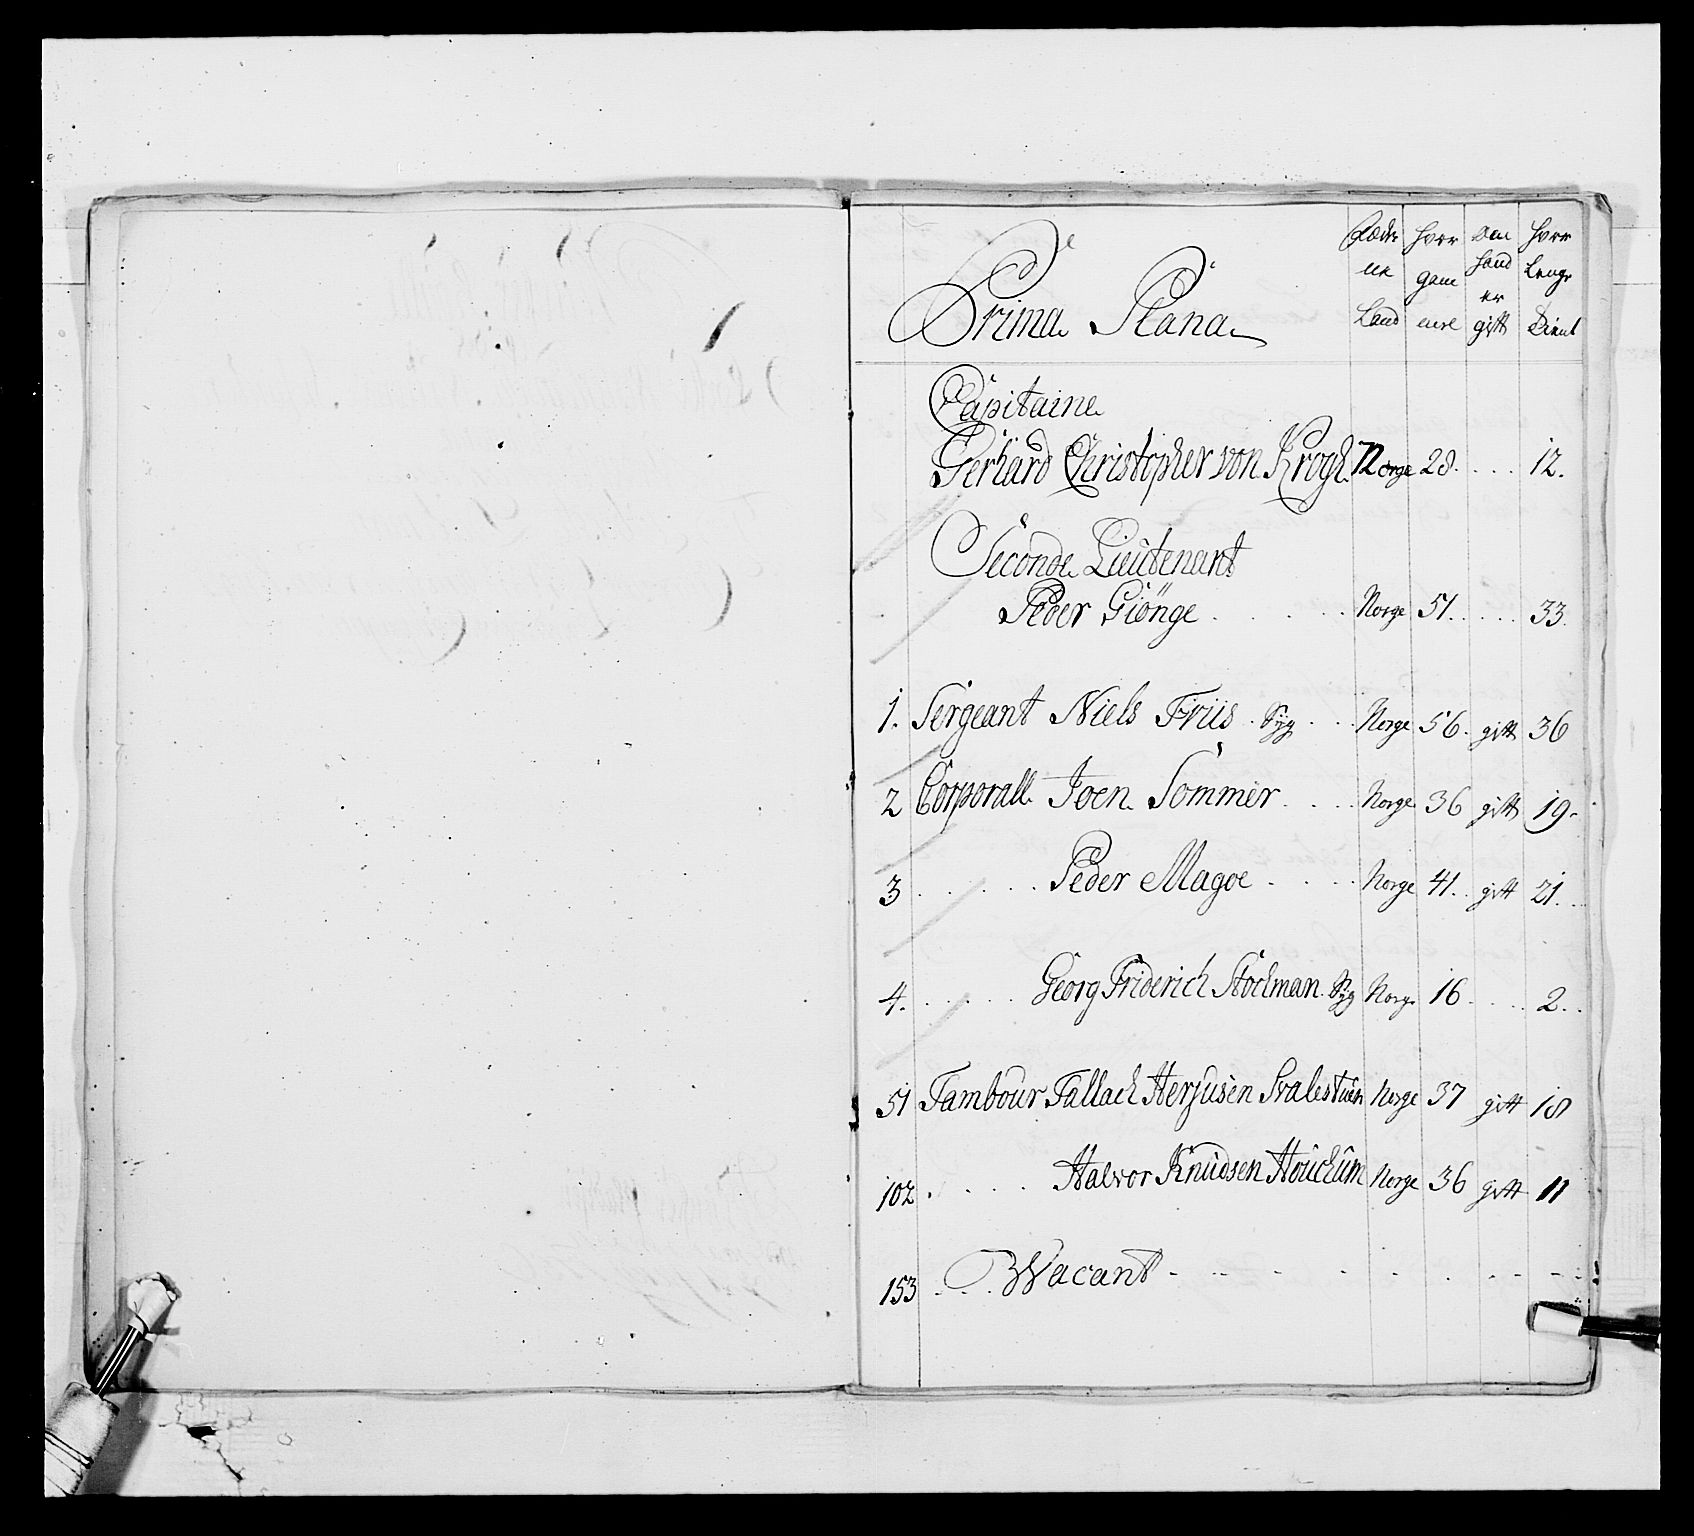 Prima Plana
Føde
ne
Land
hvor
gam
mel
Om
hand
er
gift
hvor
Lenge
Dient
Capitaine
Gerhard Christopher von Krogh Norge 28. . . . 12.
Seconde Lieutenant
Peder Giönge . . . . Norge 51. . . . . 33
1. Sergeant Niels Friis . Syg . . . Norge 56. gift 36
2 Corporall Joen Sommer . . . . Norge 36 gift 19.
3 . . . . . . Peder Magoe . . . . Norge 41. gift 21. .
4. . . . . . Georg Friderich Stockman Syg Norge 16 . . . . 2. .
51 Tambour Tallach Herjusen Svalestuen Norge 37 gift 18
102 . . . . Halvor Knudsen Houchum Norge 36 gift 11
153 . . . Wacant - - - - - - - -